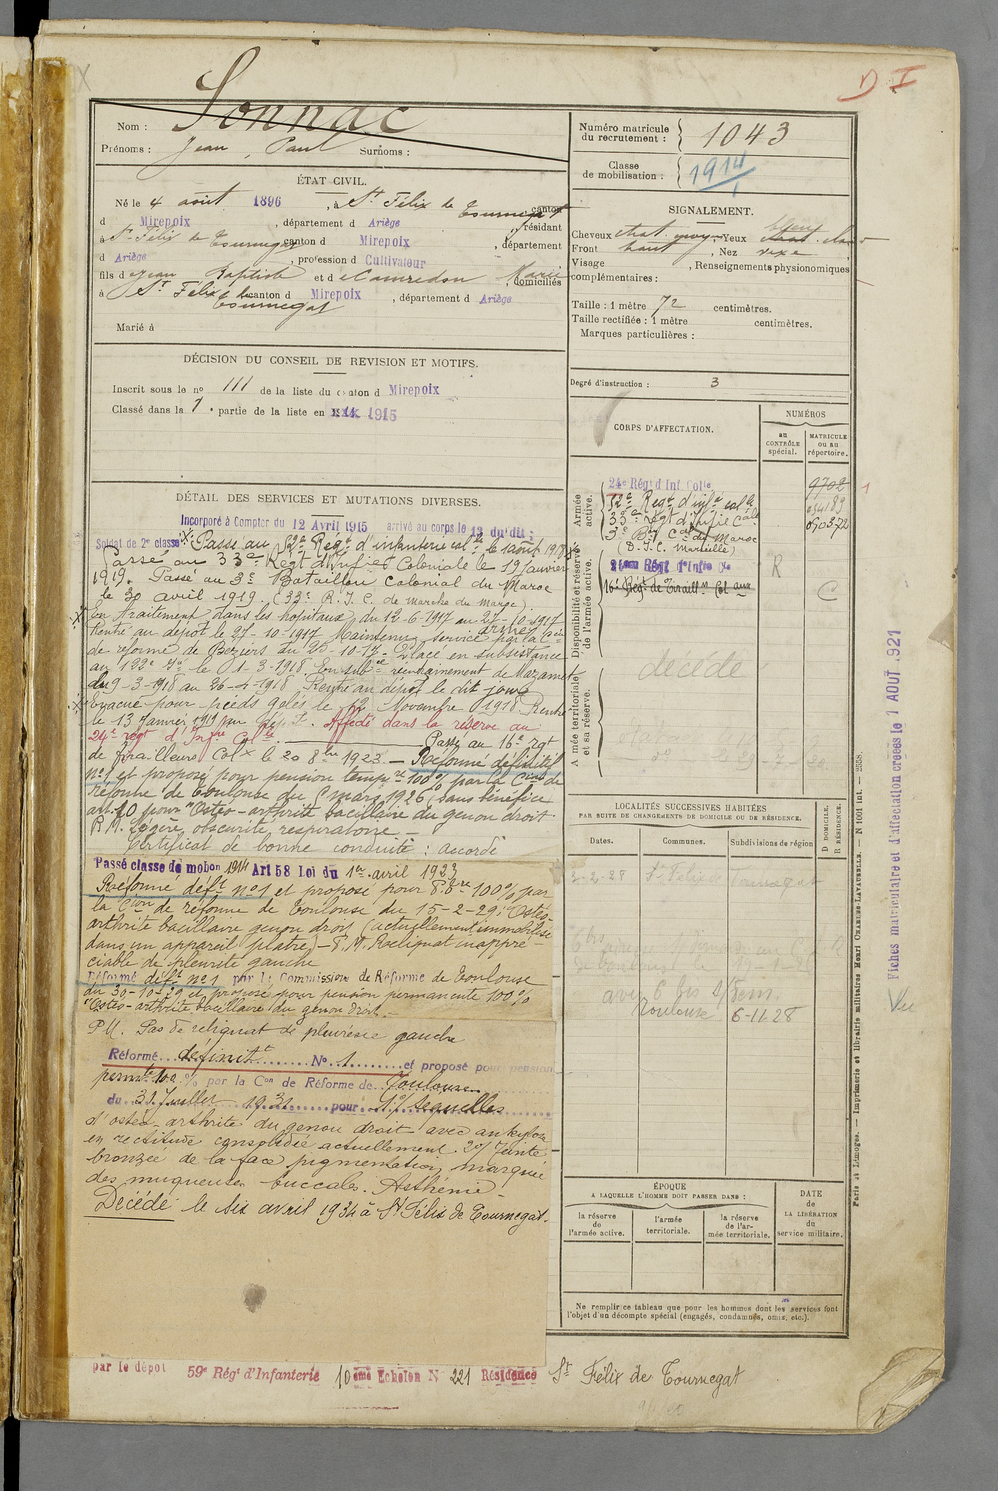 D I
Nom : Sonnac
Prénoms : Jean, Paul Surnoms :
Numéro matricule du recrutement : 1043
Classe de mobilisation : 1914
ÉTAT CIVIL.
Né le 4 août 1896, à St Félix de Tournegat canton
d Mirepoix, département d Ariège, résidant
à St Félix de Tournegat canton d Mirepoix, département
d Ariège, profession d Cultivateur
fils d Jean Baptiste et d Marie domiciliés
à St Félix de Tournegat canton d Mirepoix, département d Ariège.
Marié à
SIGNALEMENT.
Cheveux chat. Yeux bleus
Front haut, Nez
Visage , Renseignements physionomiques
complémentaires :
Taille : 1 mètre 72 centimètres.
Taille rectifiée : 1 mètre centimètres.
Marques particulières :
Degré d'instruction : 3
DÉCISION DU CONSEIL DE REVISION ET MOTIFS.
Inscrit sous le no 111 de la liste du canton d Mirepoix
Classé dans la 1e partie de la liste en 1915
DÉTAIL DES SERVICES ET MUTATIONS DIVERSES.
Incorporé à Compter du 12 Avril 1915 arrivé au corps le 13 du dit ;
Soldat de 2e classe. Passé au 52e Regt d'infanterie colle le 1er août 1918
Passé au 33e Régt d'Infie Coloniale le 19 Janvier
1919. Passé au 3e Bataillon Colonial du Maroc
le 30 avril 1919. (33e R.I.C. de marche du Maroc)
En traitement dans les hopitaux, du 12-6-1917 au 27-10-1917
Rentré au dépôt le 27-10-1917 Maintenu service armé par la Con
de réforme de Béziers du 20-10-17. Placé en subsistance
au 122e Ie le 01-3-1918. En subce recrutement de Mazamet
du 9-3-1918 au 26-4-1918 Rentré au dépôt le dit jour
Evacué pour pieds gelés le Novembre 1918. Rentré
le 13 Janvier 1919 au dépôt. Affecté dans la réserve au
24e régt d'Infie Colle Passé au 16e rgt
de Tirailleurs Colx le 20 8bre 1923. — Réformé définitif
no 1 et proposé pour pension tempre 100% par la Con de
réforme de Toulouse du mars 1926 (sans bénéfice
art. 10 pour "Ostéo-arthrite bacillaire du genou droit
P.M. Légère obscurité respiratoire —
Certificat de bonne conduite : accordé
Passé classe de mobon 1914 Art 58 Loi du 1er avril 1923
Réforme déft no 1 et proposé pour 100% par
la Con de réforme de Toulouse du 15-2-29 : "Ostéo-
arthrite bacillaire genou droit (actuellement immobilisé
dans un appareil plâtré) — P.M. Reliquat inappré-
ciable de pleurite gauche
Réformé déft no 1 par la Commission de Réforme de Toulouse
du 30-10-29 et proposé pour pension permanente 100%
"Ostéo-arthrite bacillaire du genou droit. —
P.M. Pas de reliquat de pleurésie gauche
Réformé définitt No 1 et proposé pour pension
permte 100 % par la Con de Réforme de Toulouse
du 31 Juillet 1931 pour 1o/ Sequelles
d'ostéo-arthrite du genou droit avec ankylose
en rectitude consolidée actuellement. 2o/ Teinte
bronzée de la face pigmentation marquée
des muqueuses buccales. Asthénie —
Décédé le six avril 1934 à St Félix de Tournegat.
CORPS D'AFFECTATION.
NUMÉROS
au CONTRÔLE spécial.
MATRICULE ou au répertoire.
Armée active.
24e Régt d'Inf. Colle 9702
52e Regt d'infie colle
33e Régt d'infie Colle
3e Bt Cal du Maroc
(D.I.C. Marseille)
Disponibilité et réserve de l'armée active.
24eme Régt d'Infie Cle R
16e Régt de Tiraillrs Colaux C
Armée territoriale et sa réserve.
décédé
LOCALITÉS SUCCESSIVES HABITÉES
PAR SUITE DE CHANGEMENTS DE DOMICILE OU DE RÉSIDENCE.
Dates. Communes. Subdivisions de région D DOMICILE. R RÉSIDENCE.
3-2-28 St Félix de Tournegat
avis 6 bis
Toulouse 6-11-28
ÉPOQUE
A LAQUELLE L'HOMME DOIT PASSER DANS :
la réserve de l'armée active.
l'armée territoriale.
la réserve de l'armée territoriale.
DATE de LA LIBÉRATION du service militaire.
Ne remplir ce tableau que pour les hommes dont les services font
l'objet d'un décompte spécial (engagés, condamnés, omis, etc.).
Paris et Limoges. — Imprimerie et librairie militaires Henri CHARLES-LAVAUZELLE. — N 1001 int. — 2558.
Fiches matriculaire et d'affectation créées le 1 AOUT 1921
Vu
par le dépôt 59e Régt d'Infanterie 10eme Echelon N° 221 Résidence St Félix de Tournegat